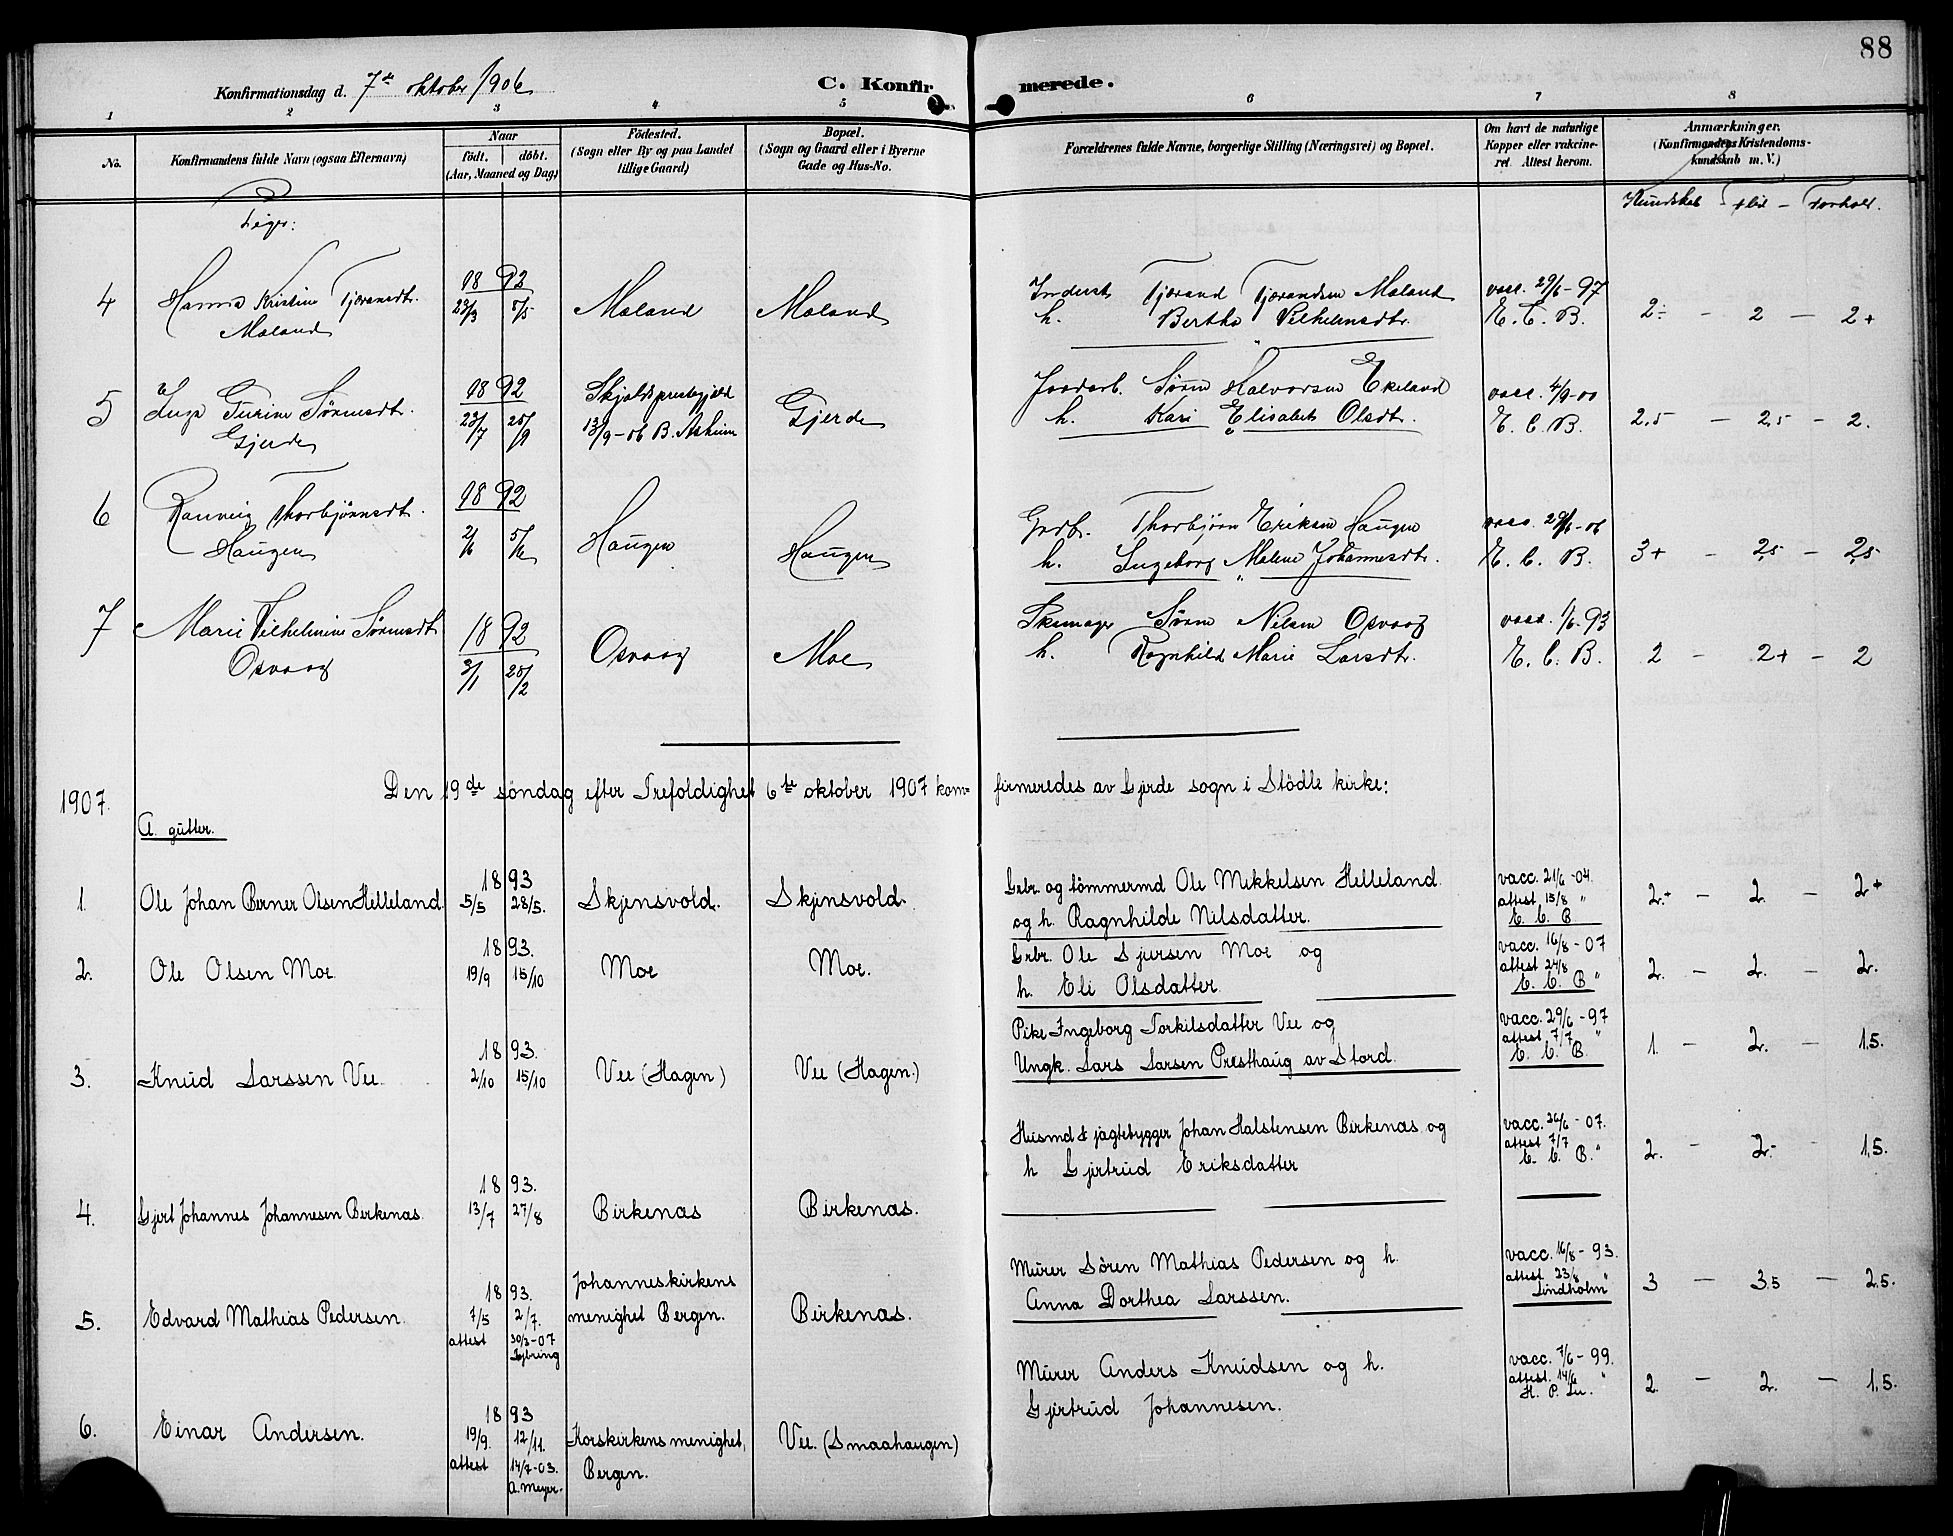 88
Konfirmationsdag d. 7de oktober 1906
C. Konfirmerede.
1 2 3 4 5 6 7 8
No.
Konfirmandens fulde Navn (ogsaa Efternavn)
Naar
födt. döbt.
(Aar, Maaned og Dag)
Födested.
(Sogn eller By og paa Landet
tillige Gaard)
Bopæl.
(Sogn og Gaard eller i Byerne
Gade og Hus-No.
Forældrenes fulde Navne, borgerlige Stilling (Næringsvei) og Bopæl.
Om havt de naturlige
Kopper eller vakcine-
ret. Attest herom.
Anmærkninger.
(Konfirmandens Kristendoms-
kundskab m. V.)
Kundskab – Flid – Forhold.
Piger:
4 Hanna Kristine Tjæransdtr. 18 92 Inderst Tjærand Tjærandsen Maland vacc. 29/6-97
Maland 23/3 8/5 Maland Maland h. Bertha Vilhelmsdtr. E. C. B. 2÷ – 2 – 2+
5 Inga Turine Sörensdtr. 18 92 Skjolds prestegjeld Jordarb. Sören Halvorsen Ekeland vacc. 4/9-00
Gjerde 23/7 25/9 13/9-06 B. Askeim Gjerde h. Kari Elisabet Olsdtr. E. C. B. 2,5 – 2,5 – 2.
6 Ranveig Thorbjörnsdtr. 18 92 Grdbr. Thorbjörn Eriksen Haugen vacc. 29/6-06
Haugen Haugen Haugen h. Ingeborg Malene Johannesdtr. E. C. B. 3+ – 2,5 – 2,5
7 Marie Vilhelmine Sörensdtr 18 92 Skomager Sören Nilsen Osvaag vacc. 1/6-93
Osvaag 3/1 28/2 Osvaag Moe h. Ragnhild Marie Larsdtr. E. C. B. 2 – 2+ – 2
1907. Den 19de söndag efter Trefoldighet 6te oktober 1907 konfirmeredes av Gjerde sogn i Stödle kirke:
A. gutter.
1. Ole Johan Berner Olsen Helleland 18 93 5/5 28/5. Skjensvold. Skjensvold.
Grbr. og tömmermd Ole Mikkelsen Helleland
og h. Ragnhilde Nilsdatter.
vacc. 21/6-04.
attest 15/8 "
E. C. B
2.+ – 2. – 2+
2. Ole Olsen Moe 18 93. 19/9 15/10 Moe Moe.
Grbr. Ole Sjursen Moe og
h. Eli Olsdatter.
vacc. 16/8-07
attest 24/8
E. C. B "
2. – 2. – 2.
3. Knud Larssen Vee. 18 93. 2/10 15/10 Vee (Hagen) Vee (Hagen.)
Pike Ingeborg Torkilsdatter Vee og
Ungk. Lars Larsen Presthaug av Stord.
vacc. 29/6-97
attest 7/7 "
E. C. B.
1. – 2. – 1,5.
4. Gjert Johannes Johannesen Berkenas. 18 93. 13/7 27/8 Birkenas Birkenas.
Husmd & jagtebygger Johan Halstensen Birkenas og
h Gjertrud Eriksdatter
vacc. 26/6-07.
attest 7/7
E. C. B. "
2. – 2.- – 1,5.
5. Edvard Mathias Pedersen. 18 93. 7/5 2/7.
attest 30/3-07
Johanneskirkens
menighet Bergen. Birkenas.
Murer Sören Mathias Pedersen og h.
Anna Dorthea Larssen.
vacc. 16/8-93.
attest 23/8 "
Lindholm
3 – 3,5 – 2,5.
6. Einar Andersen. 18 93 19/9. 12/11.
attest 14/7-03.
A. Meyer.
Korskirkens menighet,
Bergen. Vee. (Smaahaugen)
Murer Anders Knudsen og h.
Gjertrud Johannesen.
vacc. 7/6-99.
attest. 14/6 "
H. P. Lu.
2. – 2. – 1,5.